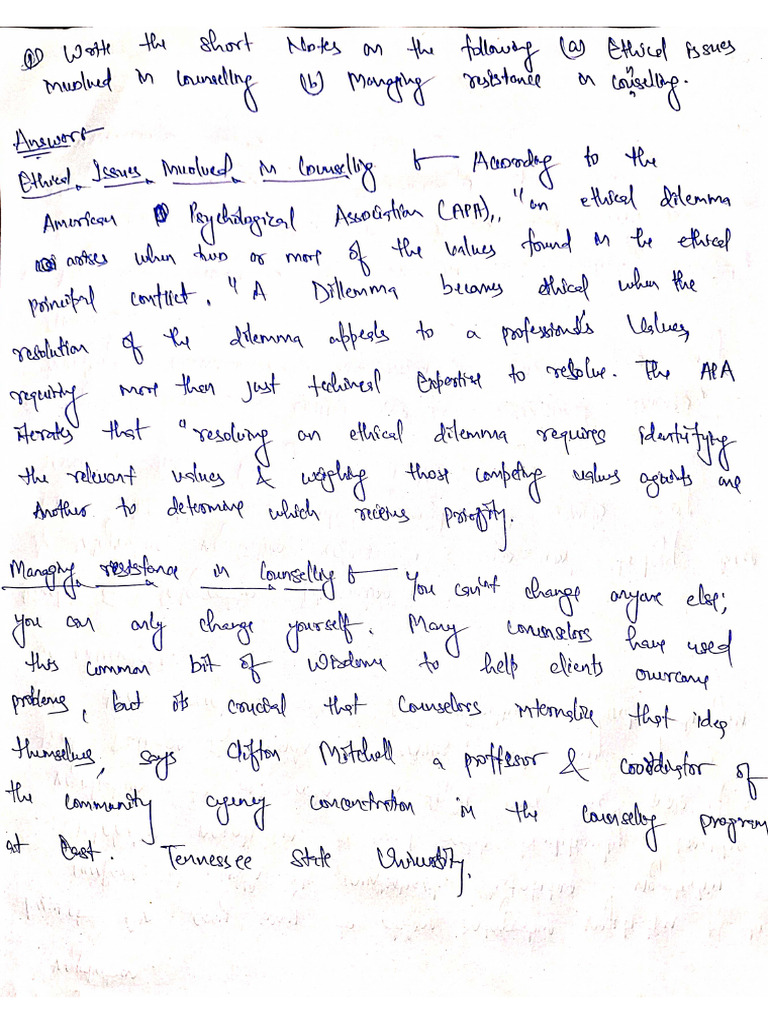 Q) Write the short Notes on the following (a) Ethical issues
involved in counselling (b) Managing resistance in counselling.
Answer
Ethical Issues Involved in Counselling :- According to the
American Psychological Association (APA), "an ethical dilemma
arises when two or more of the values found in the ethical
principal conflict." A Dillemma becomes ethical when the
resolution of the dilemma appeals to a professional's Values,
requiring more then just techinical Expertise to resolve. The APA
iterates that "resolving an ethical dilemma requires identifying
the relevant values & weighing those competing values againts one
Another to determine which recieves priority.
Managing resistance in Counselling :- You can't change anyone else;
you can only change yourself. Many counselors have used
this common bit of wisdome to help clients overcome
problems, but its crucial that Counselors internalize that idea
themselves, says Clifton Mitchell a proffesor & coordinator of
the community agency concentration in the counseling program
at East. Tennessee State University.